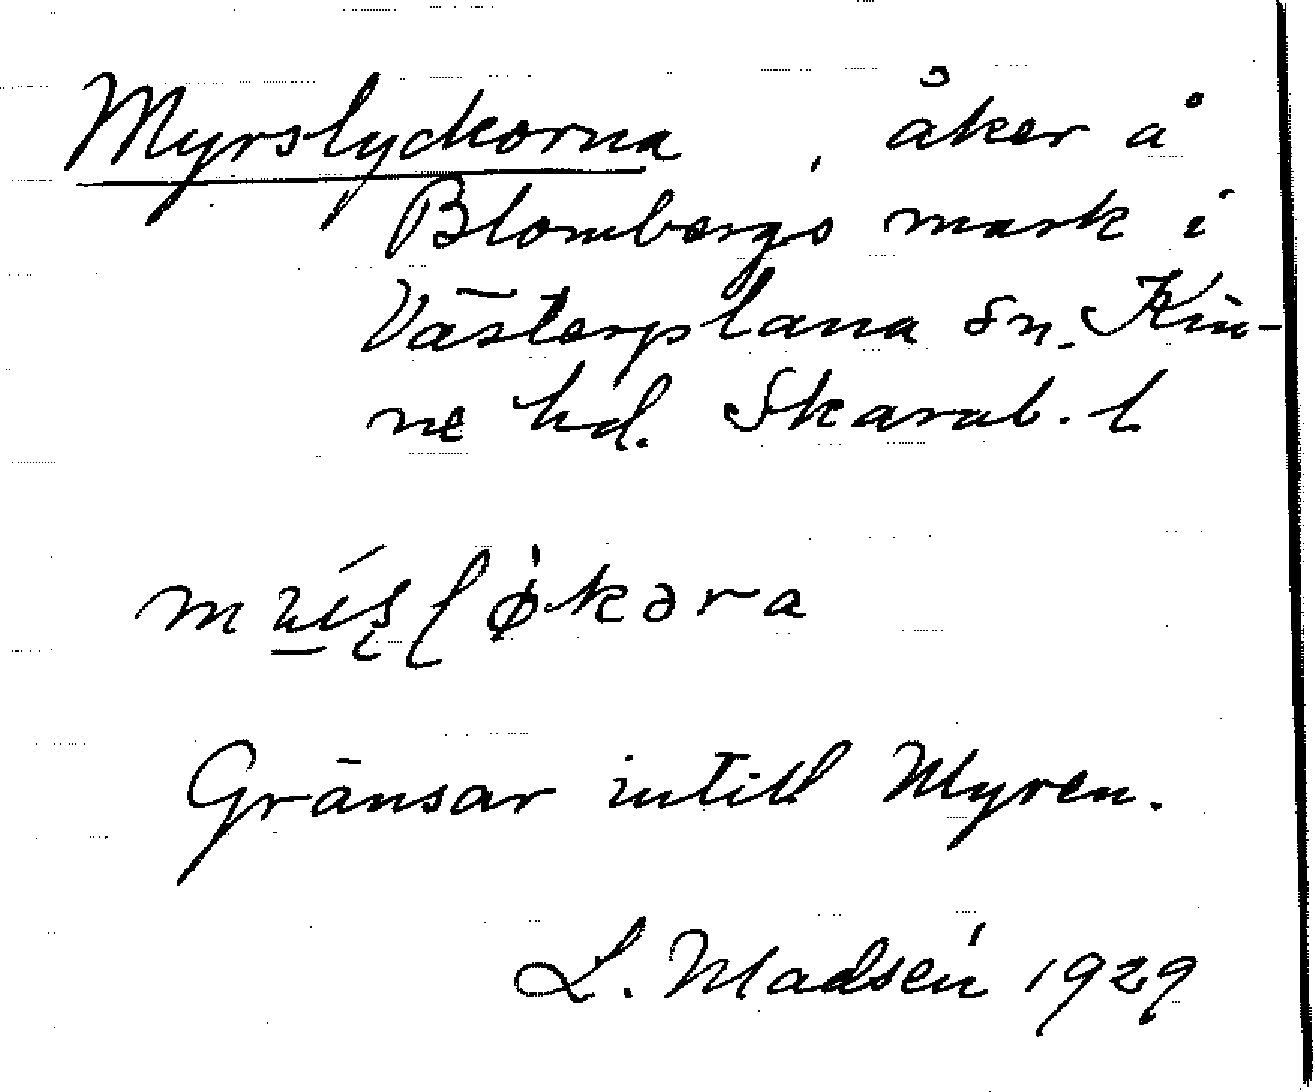 Myrslyckorna, åker å
Blombergs mark i
Västerplana sn. Kin-
ne hd. Skarab. l
Gränsar intill Myren.
L. Madsén 1929